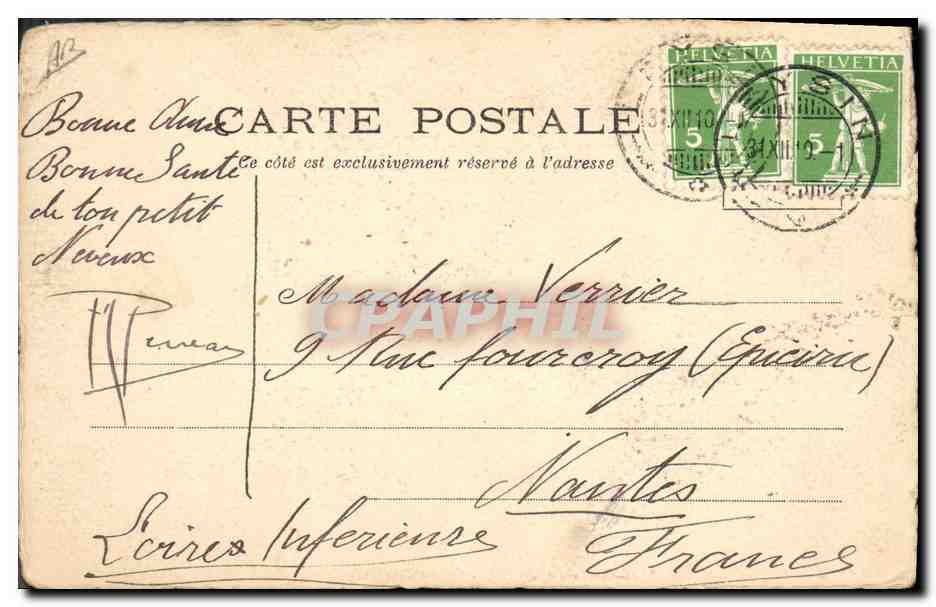 AB
Bonne Année
Bonne Santé
de ton petit
Neveux
CARTE POSTALE
Ce côté est exclusivement réservé à l'adresse
HELVETIA
5
HELVETIA
5
31.XII.10.
LEYSIN
31.XII.10.-1
Madame Verrier
9 Rue fourcroy (Epicerie)
Nantes
Loires Inferieure
France
CPAPHIL